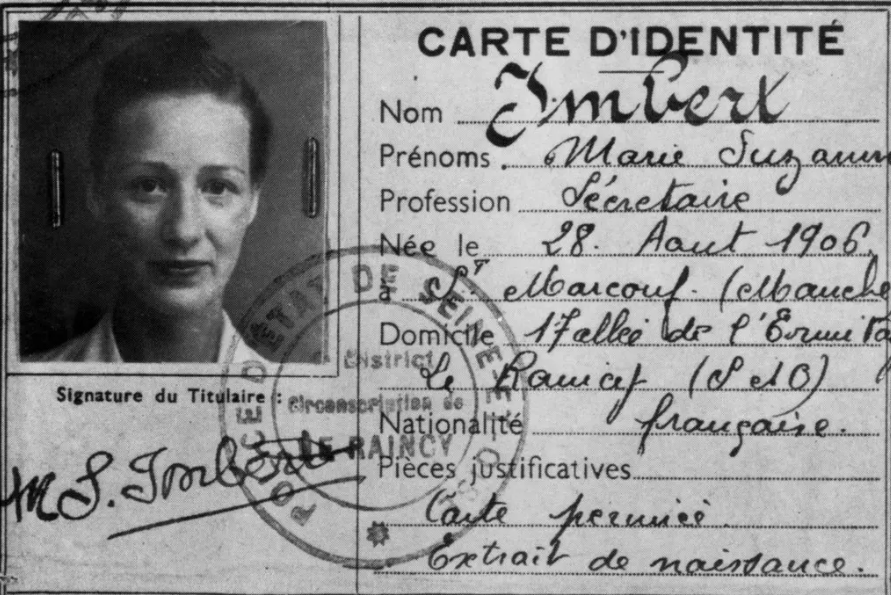 CARTE D'IDENTITÉ
Nom Imbert
Prénoms. Marie Suzann
Profession Sécretaire
Née le 28. Aout 1906.
à St Marcouf. (Manche
Domicile 17 allée de l'Ermita
Le Raincy (S et O)
Nationalité française.
Pièces justificatives
Carte périmée.
Extrait de naissance.
Signature du Titulaire :
M S. Imbert
POLICE D'ETAT DE SEINE-ET-O
District
Circonscription de
LE RAINCY